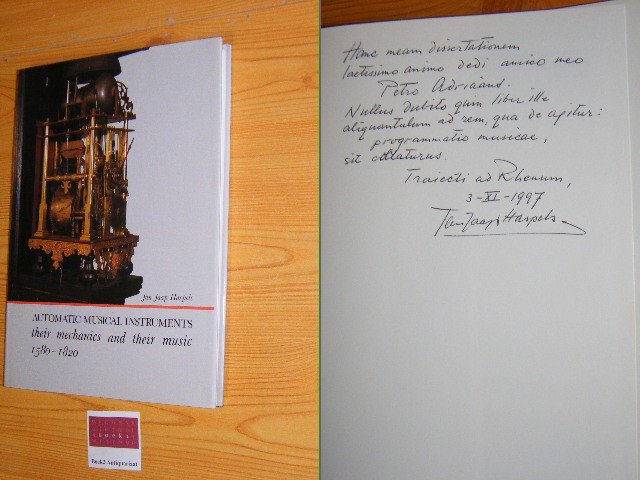 Jan Jaap Haspels
AUTOMATIC MUSICAL INSTRUMENTS
their mechanics and their music
1580-1820
boek2
Boek2 Antiquariaat
Hanc meam dissertationem
laetissimo animo dedi amico meo
Petro Adriáans.
Nullus dubito quin liber ille
aliquantulum ad rem, qua de agitur:
programmatio musicae,
sit collaturus.
Traiecti ad Rhenum,
3-XI-1997
Jan Jaap Haspels